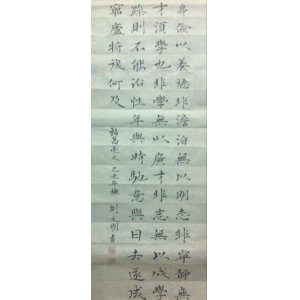 身儉以養德非澹泊無以明志非寧靜無
才須學也非學無以廣才非志無以成學
躁則不能治性年與時馳意與日去遂成
窮廬將復何及
諸葛亮文 未年 劉文明書